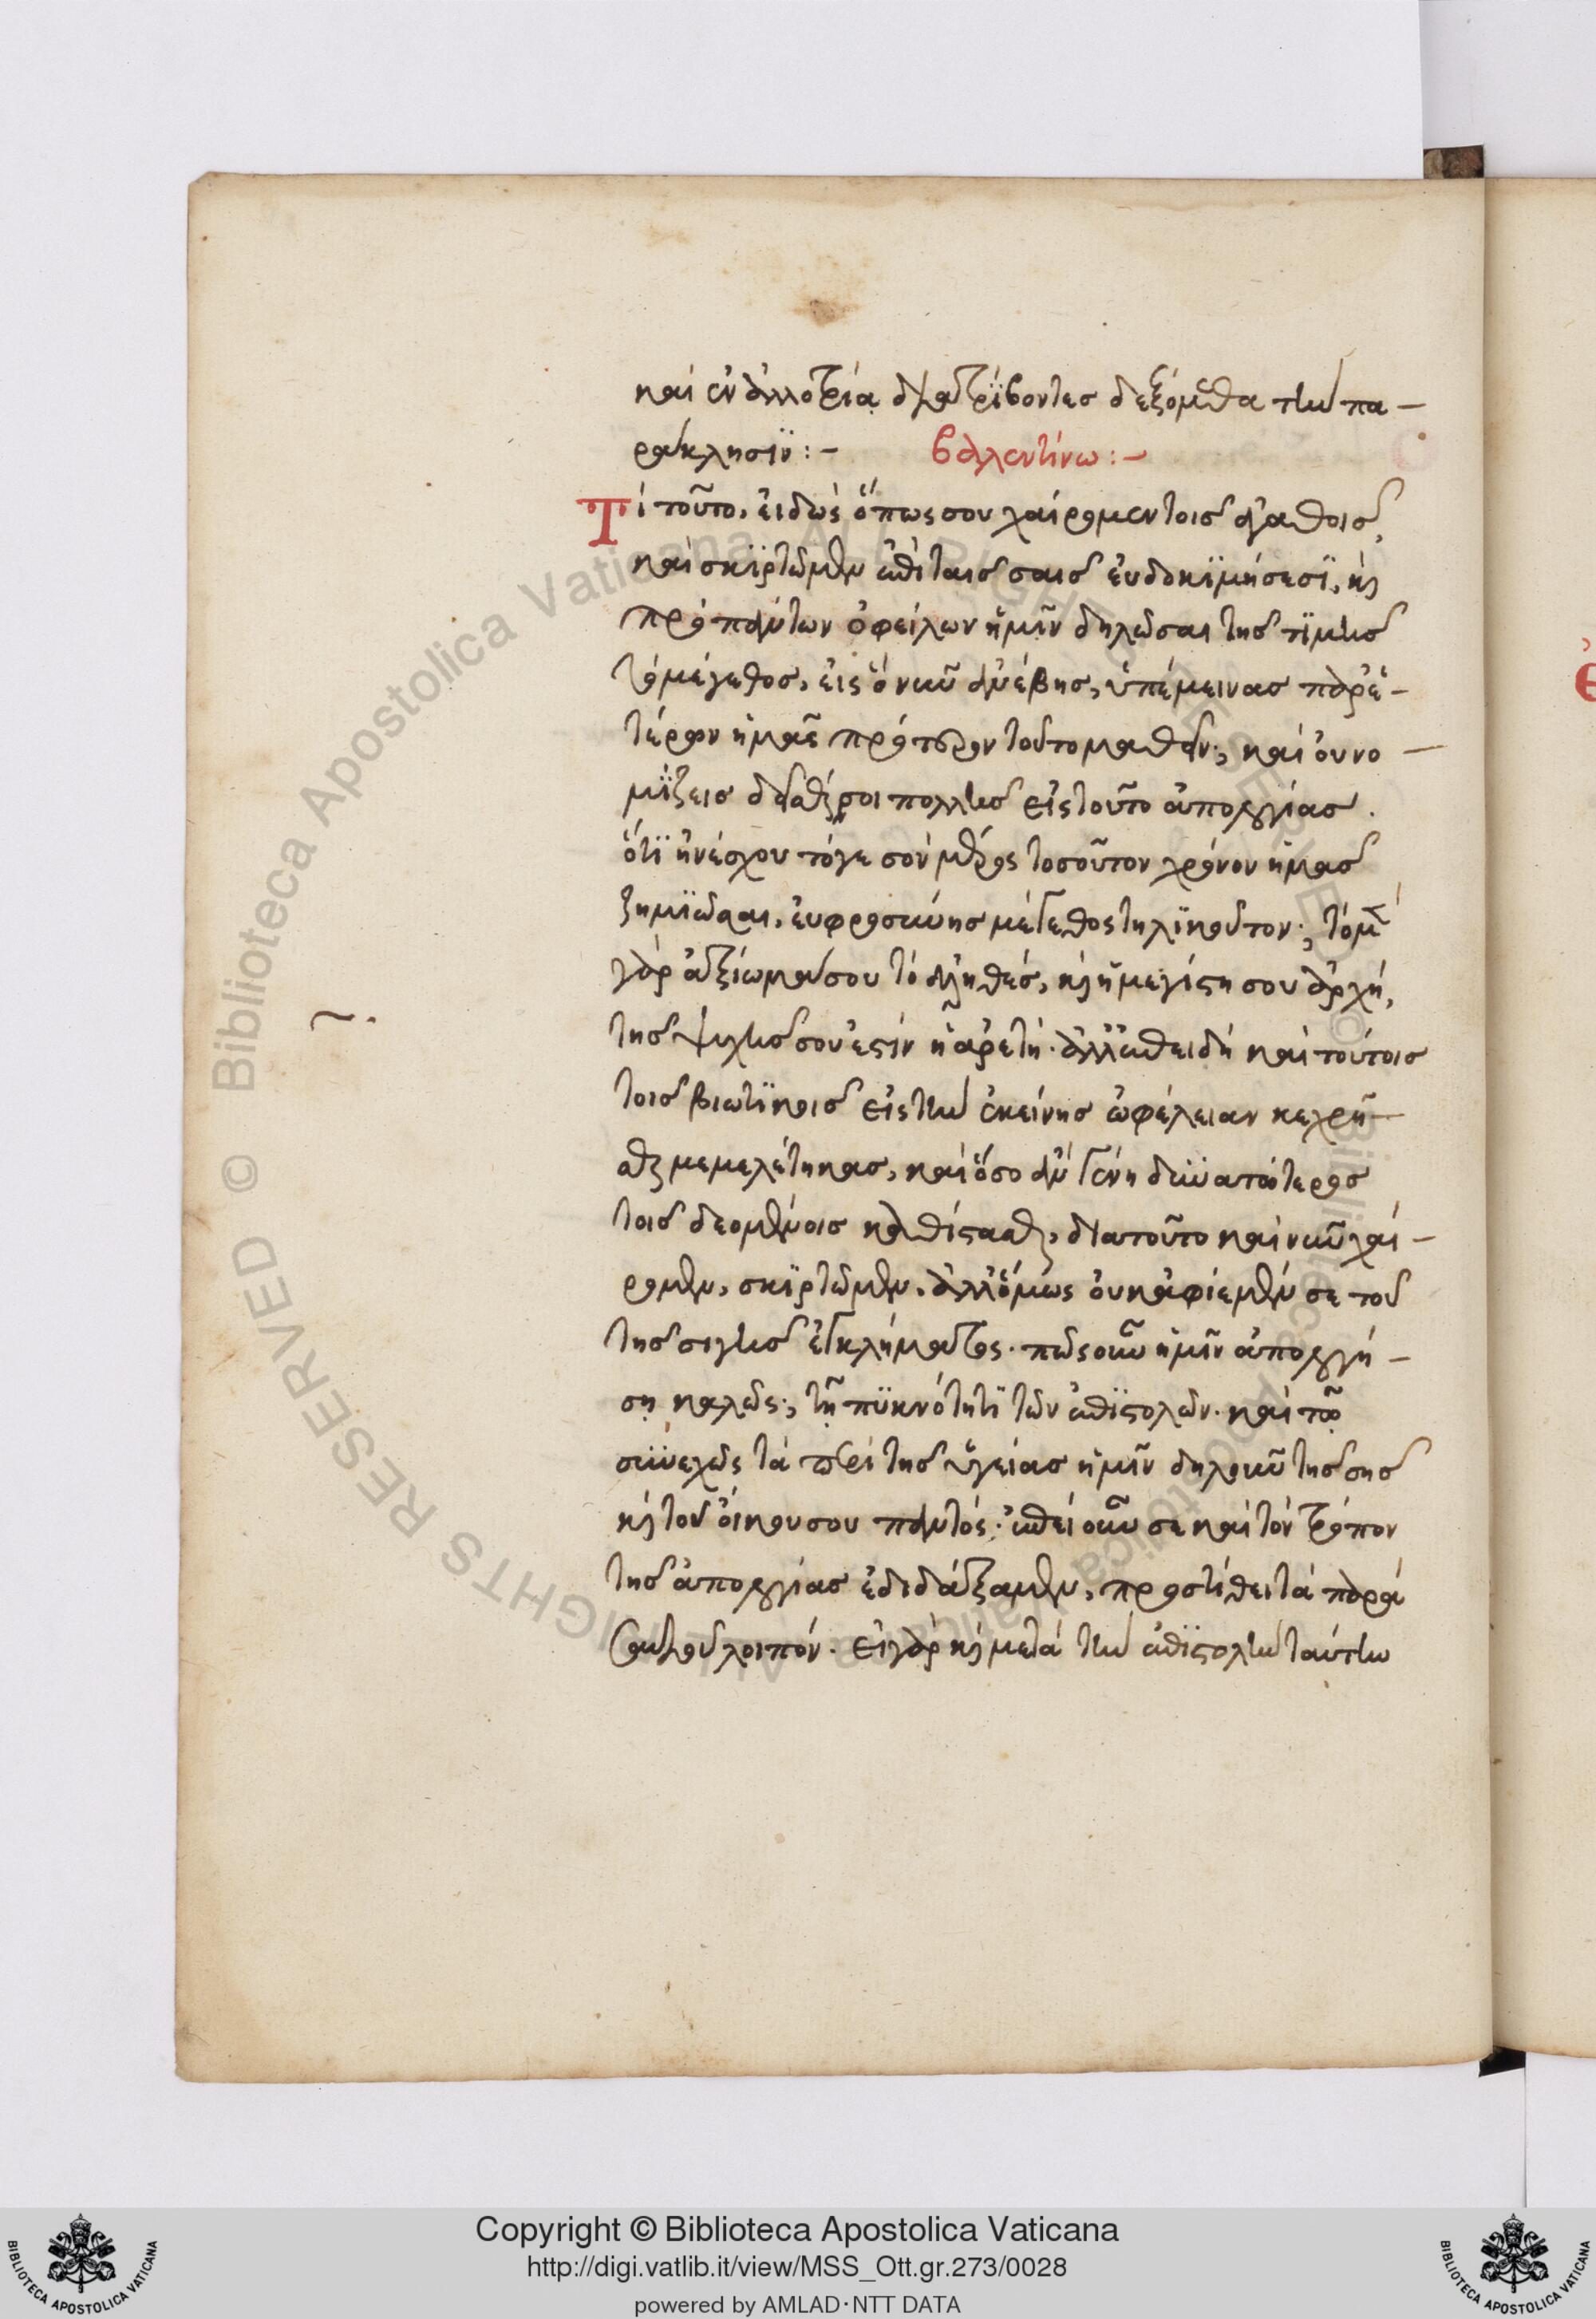 καὶ ἐν ἀλλοτρία διατρίβοντες δεξόμεθα τὴν πα-
ράκλησϊν:-
βαλεντίνω:-
Τί τοῦτο, εἰδὼς ὅπως σου χαίρομεν τοις ἀγαθοις,
καὶ σκϊρτῶμεν ἐπὶ ταις σαις ἐυδοκϊμήσεσϊ, κὶ
πρὸ πάντων ὀφείλων ἡμῖν δηλῶσαι της τϊμης
τὸ μέγεθος, εἰς ὃ νῦν ἀνέβης, ὑπέμεινας παρ' ἑ-
τέρων ἡμᾶς πρότερον τοῦτο μαθεῖν; καὶ ὀυ νο-
μΐζεις δεῖσθαί σοι πολλης εἰς τοῦτο ἀπολογίας.
ὅτϊ ἠνέσχου τόγε σὸν μέρος τοσοῦτον χρόνον ἡμας
ζημϊῶσαι, ἐυφροσύνης μέγεθος τηλϊκοῦτον; τὸ μὲν
γὰρ ἀξίωμα σου τὸ ἀληθὲς, κὶ ἡ μεγίστη σου ἀρχὴ,
της ψυχης σου ἐστὶν ἡ ἀρετή. ἀλλ' ἐπειδὴ καὶ τούτοις
τοις βιωτϊκοις εἰς τὴν ἐκείνης ὠφέλειαν κεχρῆ-
σθαι μεμελέτηκας, καὶ ὅσο ἂν γένη δϋνατώτερος
τοις δεομένοις καθίστασθαι, δια τοῦτο καὶ νῦν χαί-
ρομεν, σκϊρτῶμεν. ἀλλ' ὅμως ὀυκ ἀφίεμέν σε τοῦ
της σιγης ἐγκλήματος. πῶς οὖν ἡμῖν ἀπολογή-
ση καλῶς; τῆ πϋκνότητϊ τῶν ἐπϊστολῶν. καὶ τῶ
σϋνεχῶς τὰ περὶ της ὑγείας ἡμῖν δηλοῦν της σης
κὶ τοῦ ὀίκου σου παντός. ἐπεὶ οὖν σε καὶ τὸν τρόπον
της ἀπολογίας ἐδιδάξαμεν, προστίθει τὰ παρὰ
σαυτοῦ λοιπόν. εἰ γὰρ κὶ μετὰ τὴν ἐπϊστολὴν ταύτην